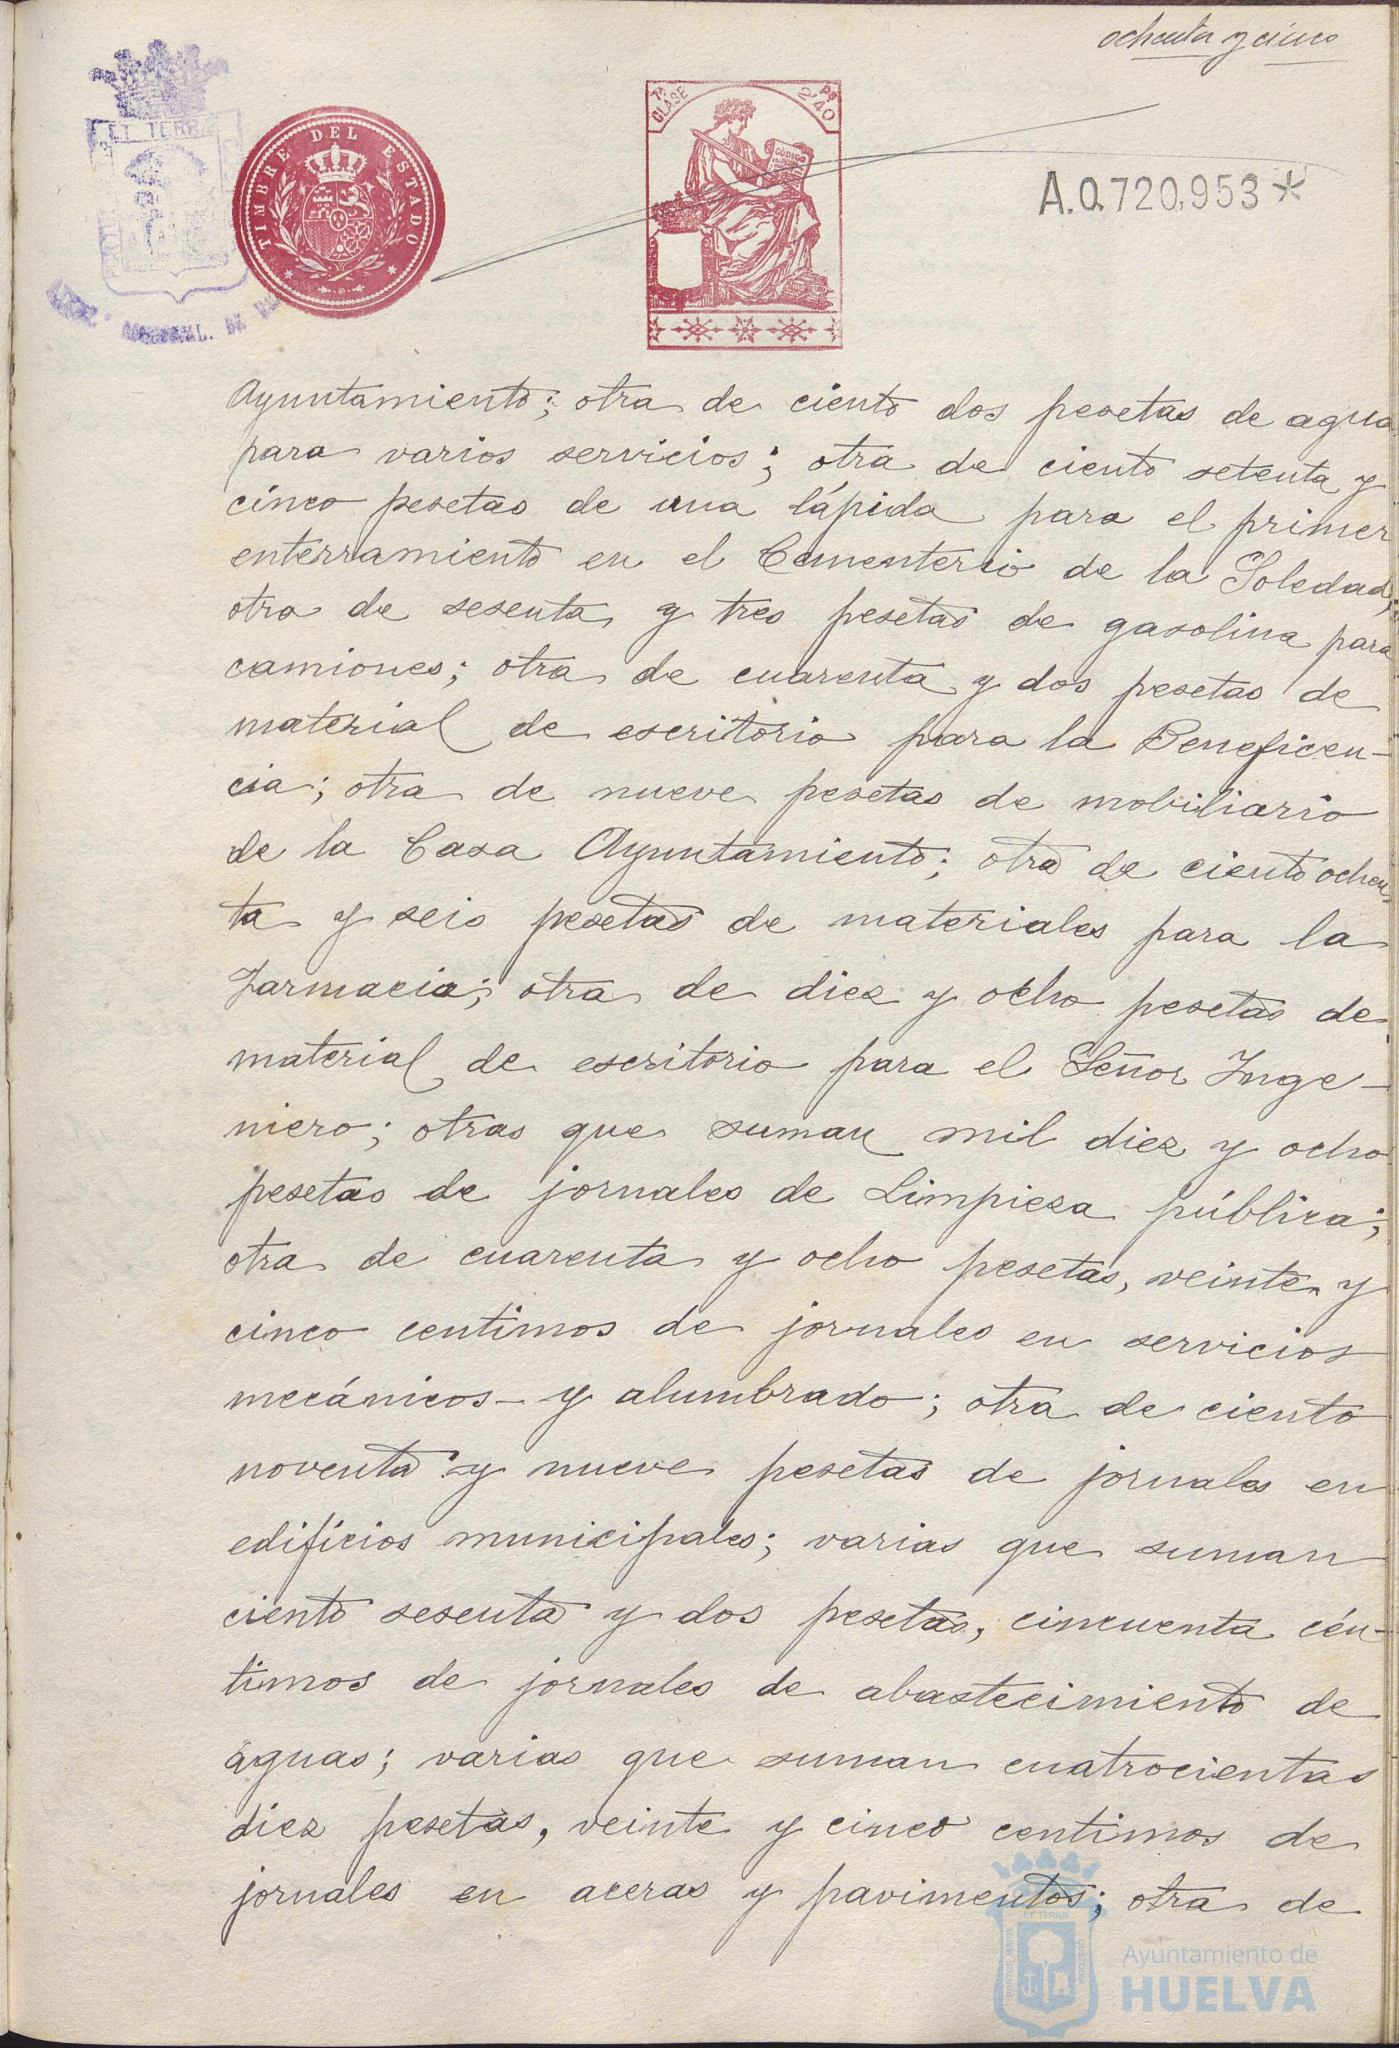 ochenta y cinco
7ª CLASE
Ps 2'40
CÓDIGO
ET TERRÆ
TIMBRE DEL ESTADO
A.0.720,953*
Ayuntamiento; otra de ciento dos pesetas de agua
para varios servicios; otra de ciento setenta y
cinco pesetas de una lápida para el primer
enterramiento en el Cementerio de la Soledad;
otra de sesenta y tres pesetas de gasolina para
camiones; otra de cuarenta y dos pesetas de
material de escritorio para la Beneficen-
cia; otra de nueve pesetas de mobiliario
de la Casa Ayuntamiento; otra de ciento ochen-
ta y seis pesetas de materiales para la
Farmacia; otra de diez y ocho pesetas de
material de escritorio para el Señor Inge-
niero; otras que suman mil diez y ocho
pesetas de jornales de Limpieza pública;
otra de cuarenta y ocho pesetas, veinte y
cinco centimos de jornales en servicios
mecánicos - y alumbrado; otra de ciento
noventa y nueve pesetas de jornales en
edificios municipales; varias que suman
ciento sesenta y dos pesetas, cincuenta cén-
timos de jornales de abastecimiento de
aguas; varias que suman cuatrocientas
diez pesetas, veinte y cinco centimos de
jornales en aceras y pavimentos; otra de
Ayuntamiento de
HUELVA